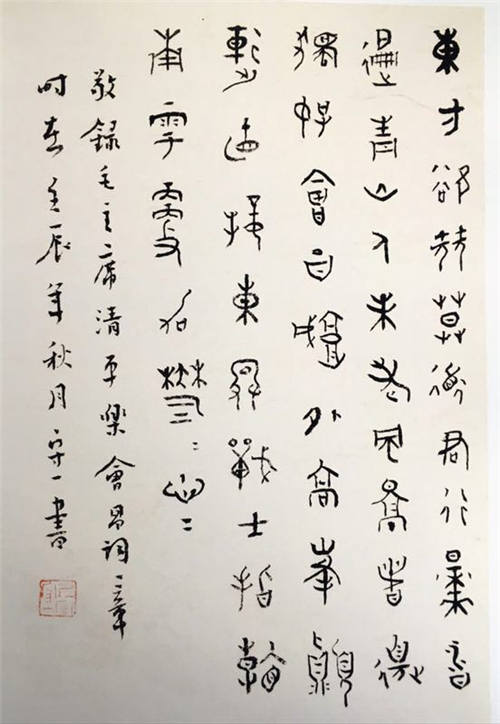 東方欲曉莫道君行早踏
遍青山人未老風景者邊
獨好會昌城外高峰顛
連直接東溟戰士指看
南雩更加鬱〻蔥〻
敬錄毛主席清平樂會昌詞一章
时在壬辰年秋月一書